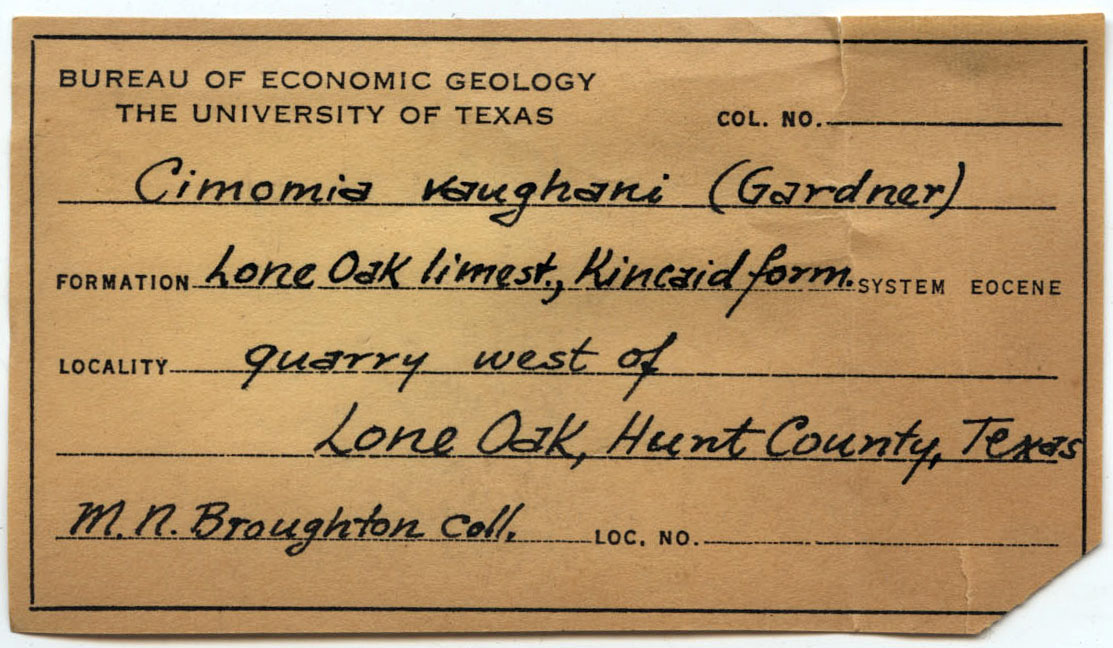 BUREAU OF ECONOMIC GEOLOGY
THE UNIVERSITY OF TEXAS
COL. NO.
Cimomia vaughani (Gardner)
FORMATION Lone Oak limest., Kincaid form. SYSTEM EOCENE
LOCALITY quarry west of
Lone Oak, Hunt County, Texas
M. N. Broughton coll. LOC. NO.